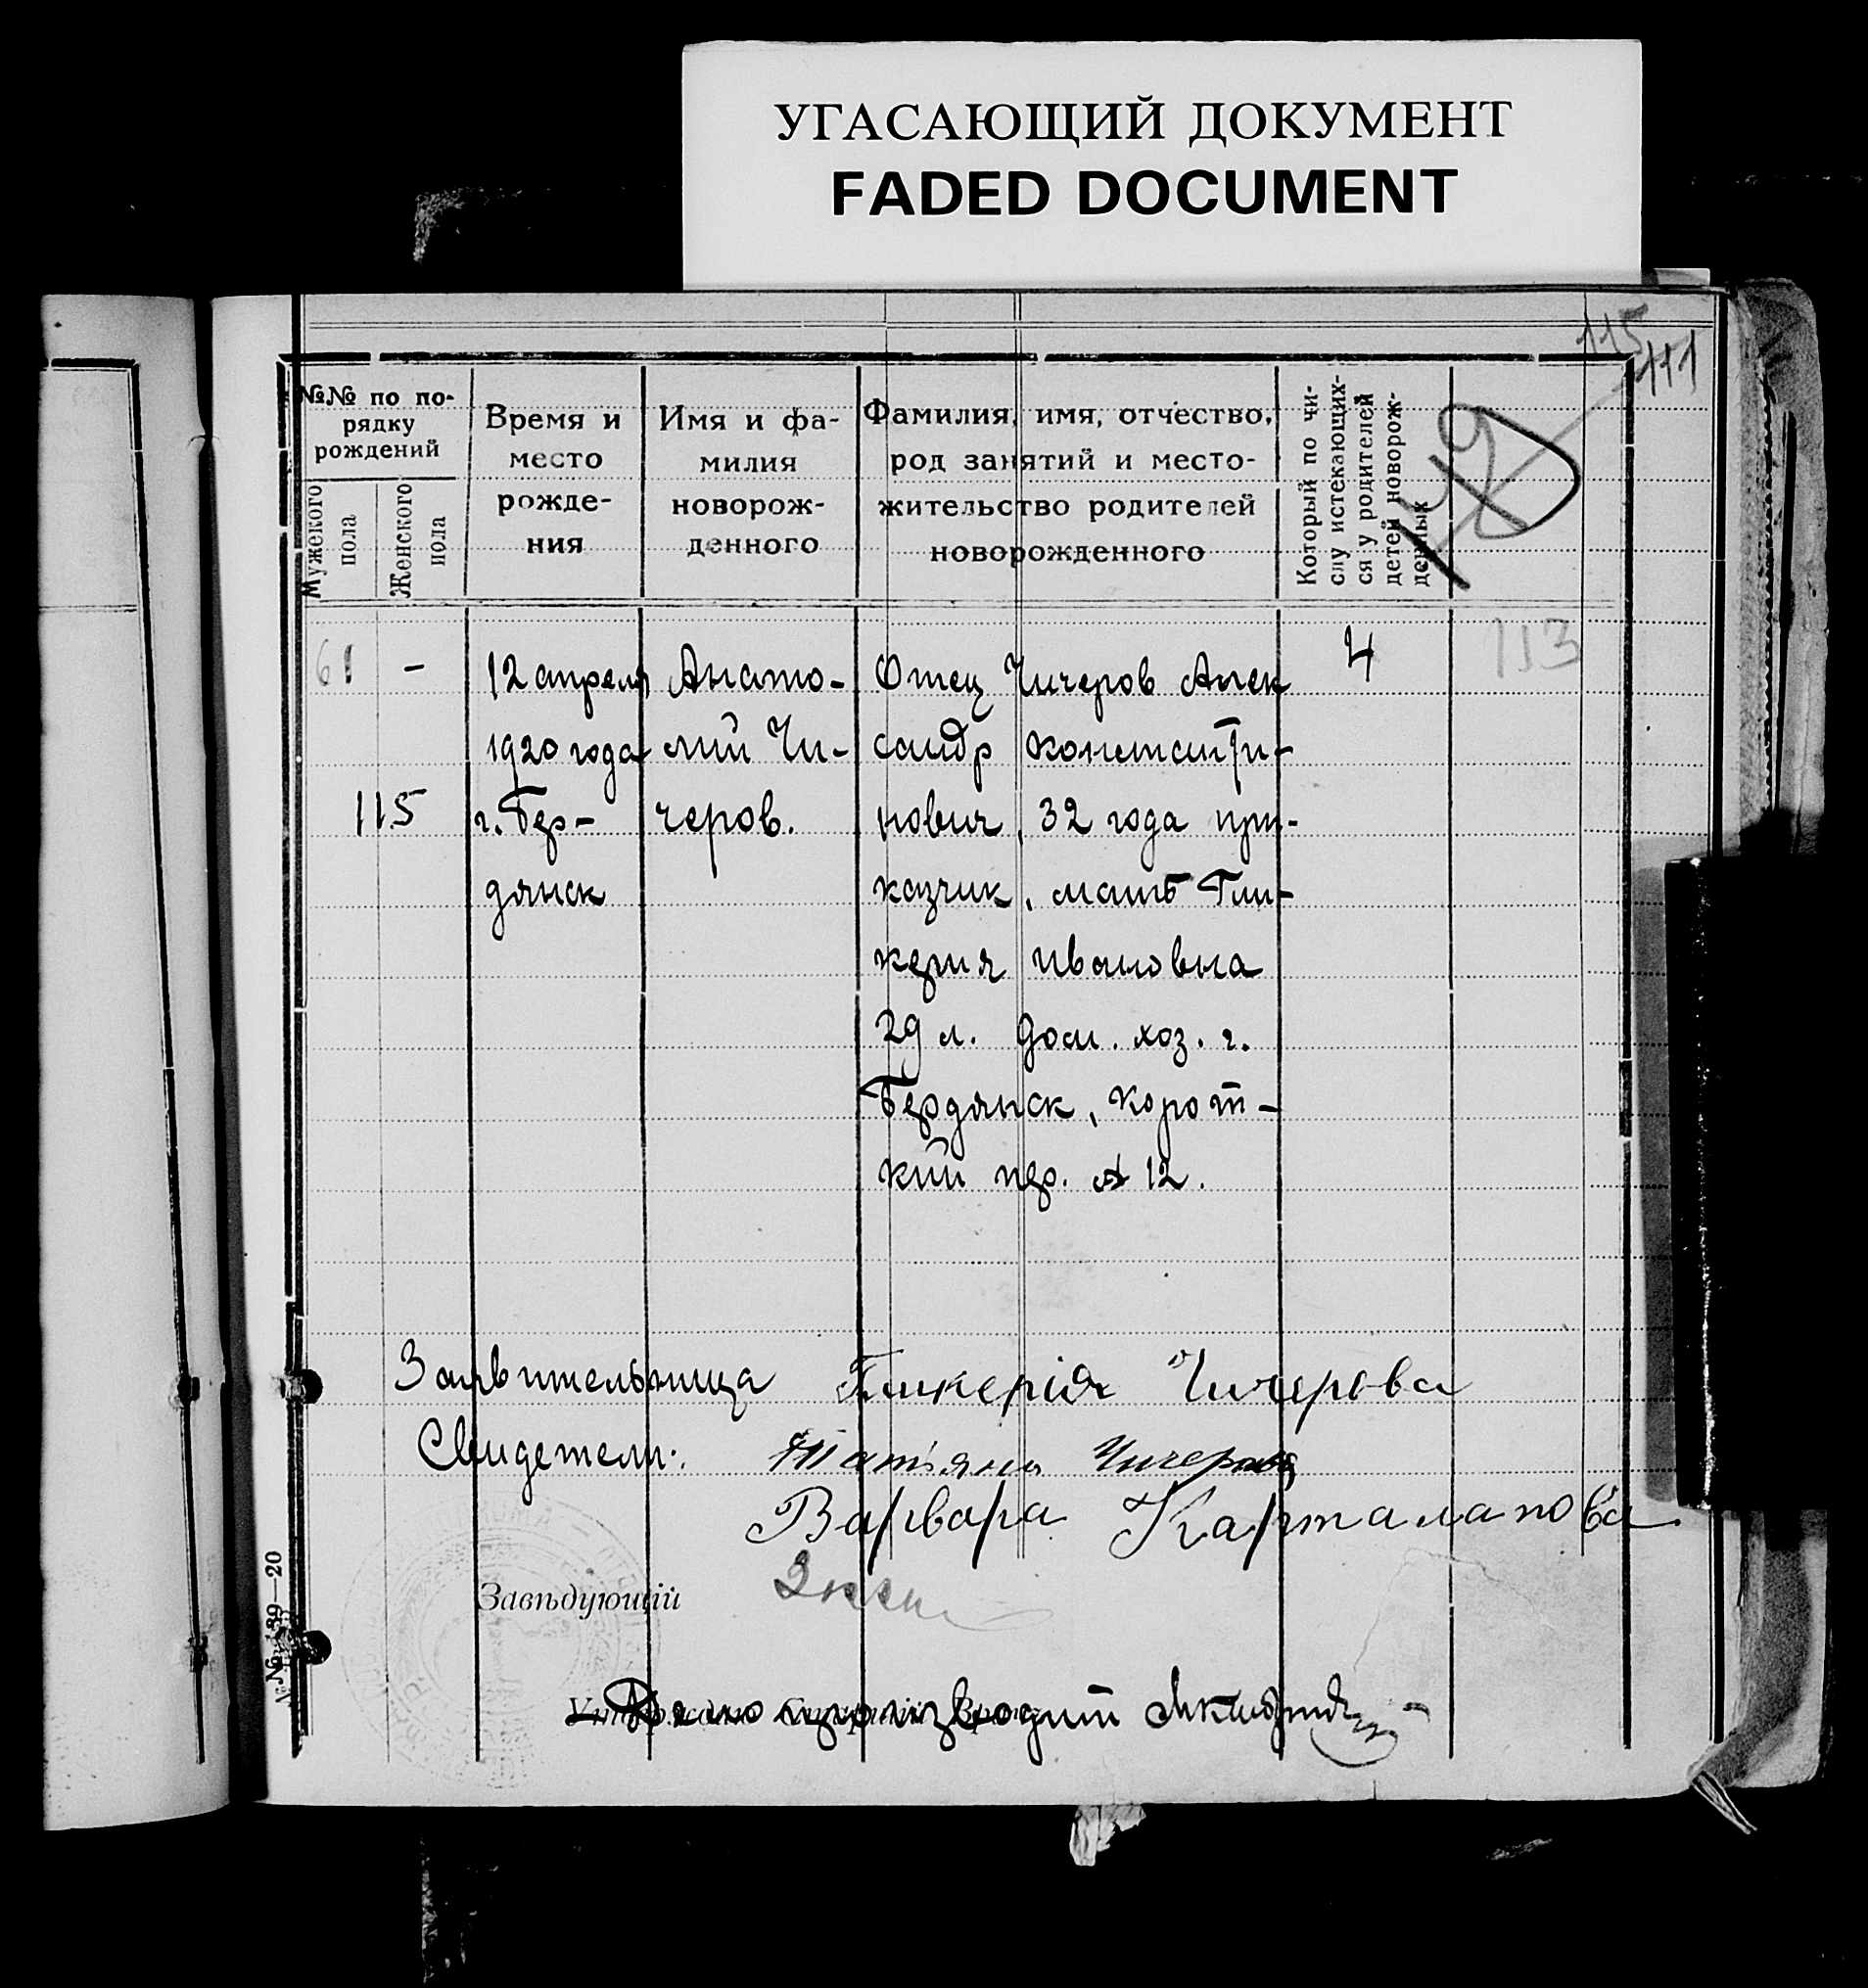 УГАСАЮЩИЙ ДОКУМЕНТ
FADED DOCUMENT
115
111
№№ по по-
рядку
рождений
Мужеского
пола
Женского
пола
Время и
место
рожде-
ния
Имя и фа-
милия
новорож-
денного
Фамилия, имя, отчество,
род занятий и место-
жительство родителей
новорожденного
Который по чи-
слу истекающих-
ся у родителей
детей новорож-
денных
61 – 12 апреля Анато- Отец Чичеров Алек 4 113
1920 года лий Чи- сандр Константи-
115 г. Бер- черов. нович, 32 года при-
дянск казчик, мать Гли-
керия Ивановна
29 л. дом. хоз. г.
Бердянск, Корот-
кий пер. № 12.
Заявительница Гликерія Чичерова
Свидетели: Татьяна Чичерова
Варвара Карталапова
Завѣдующій
Дело производит
№ 39—20